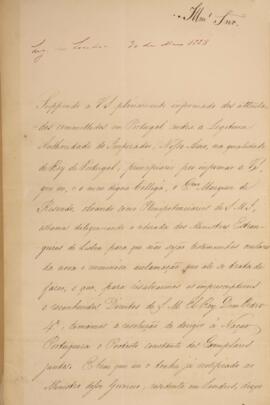 Illmo Snr.
Leg. em Londres 30 de Maio 1828
Suppondo a VS. plenamente informado dos attenta-
dos commettidos em Portugal contra a Legitima
Authoridade do Imperador, Nosso Amo, na qualidade
de Rey de Portugal, principiarei por informar a VS.
que eu, e o meu digno Collega, o Exmo Marquez de
Rezende, obrando como Plenipotenciarios de S.M.I.,
da nova e criminosa acclamação que ali se trata de
fazer, e que, para resalvarmos os imprescriptiveis
e reconhecidos Direitos de S. M. El Rey Dom Pedro
4º, tomamos a resolução de dirigir á Nação
Portugueza o Protesto constante dos Exemplares
juntos. E bem que eu o tenha já notificado ao
Ministro desse Governo, residente em Londres,